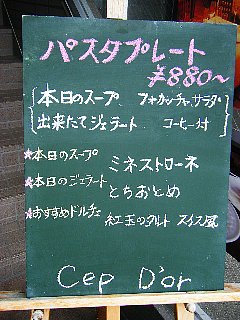 パスタプレート
¥880~
本日のスープ フォカッチャ、サラダ
出来たてジェラート コーヒー付
★本日のスープ ミネストローネ
★本日のジェラート とちおとめ
★おすすめドルチェ 紅玉のタルト スイス風
Cep D'or